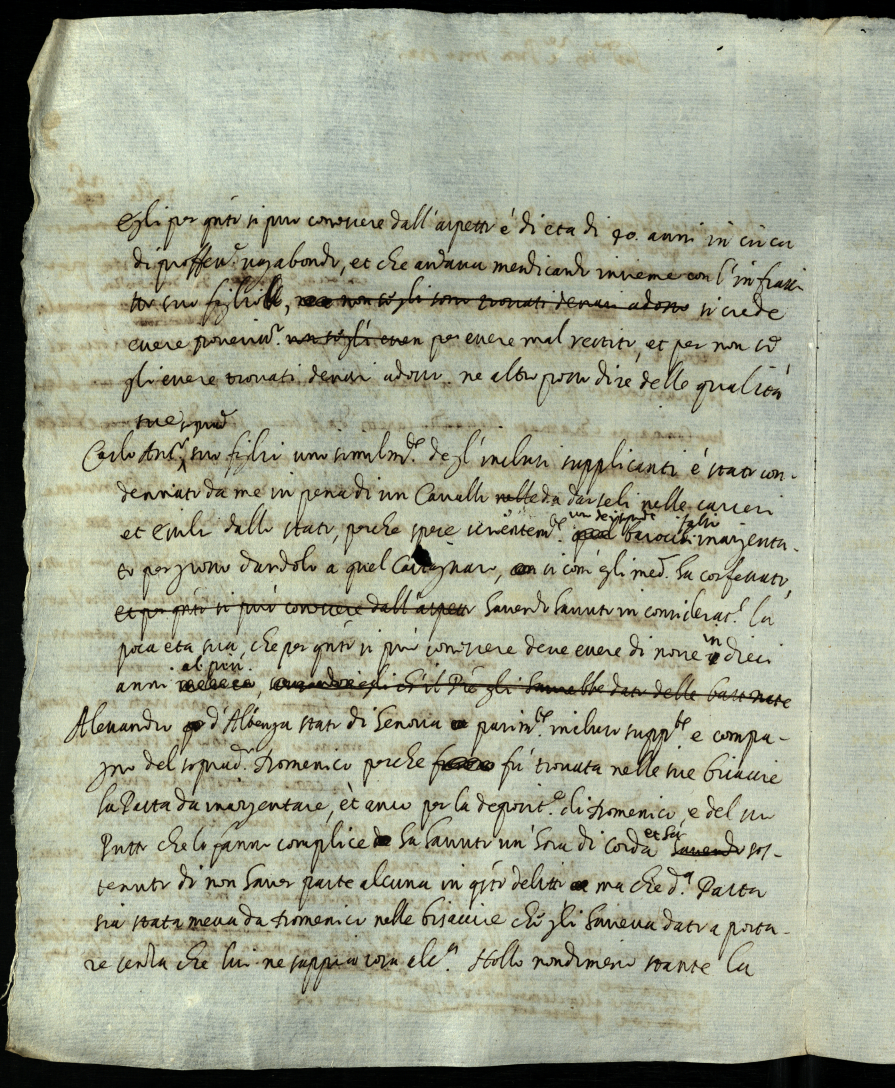 Egli per q̃nto si può conoscere dall'aspetto é di eta di 40. anni in circa
di proffess.e vagabondo, et che andava mendicando insieme con l'infrascri
tto suo figliolo, non se gli sono trovati denari adosso si crede
essere poveriss.o non se gli essen per essere mal vestito, et per non se
gli essere trovati denari adosso. ne altro posso dire delle qualità
sue
Carlo Ant.o suo figlio uno similm.te degl'inclusi supplicanti é stato con-
dennato da me in pena di un Cavallo nelle da darseli nelle carceri
et esilio dallo stato, perche spese scientem.te un baiocco falso inarzenta-
to per grosso dandolo a quel Cartegnaro, si com'egli med.o ha confessato
et per q̃nto si può conoscere dall'aspetto havendo havuto in considerat.e la
poca eta sua, che per q̃nto si può conoscere deve essere di nove in dieci
anni al più, gli havrebbe dato delle bastonate
Alessandro d'Albenga stato di Genova parim.te incluso supp.te e compa-
gno del soprad.o Domenico perche fú trovata nelle sue bisaccie
la Pasta da inarzentare, et anco per la deposit.e di Domenico, e del suo
Putto che lo fanno complice ha havuto un'hora di corda et ha havendo sos-
tenuto di non haver parte alcuna in q̃sto delitto ma che d.a Pasta
sia stata messa da Domenico nelle bisaccie che gli haveva dato a porta-
re senza che lui ne sappia cosa alc.a nondimeno stante la